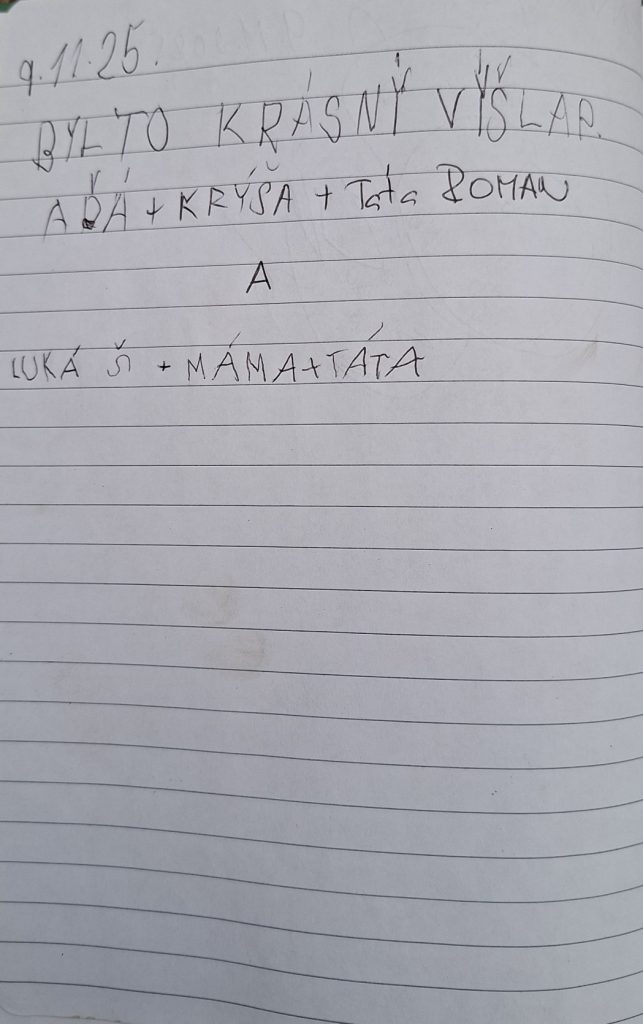 9.11.25.
BYL TO KRÁSNÝ VÝŠLAP.
AĎÁ + KRÝŠA + Táta ROMAN
A
LUKÁ Š + MÁMA + TÁTA